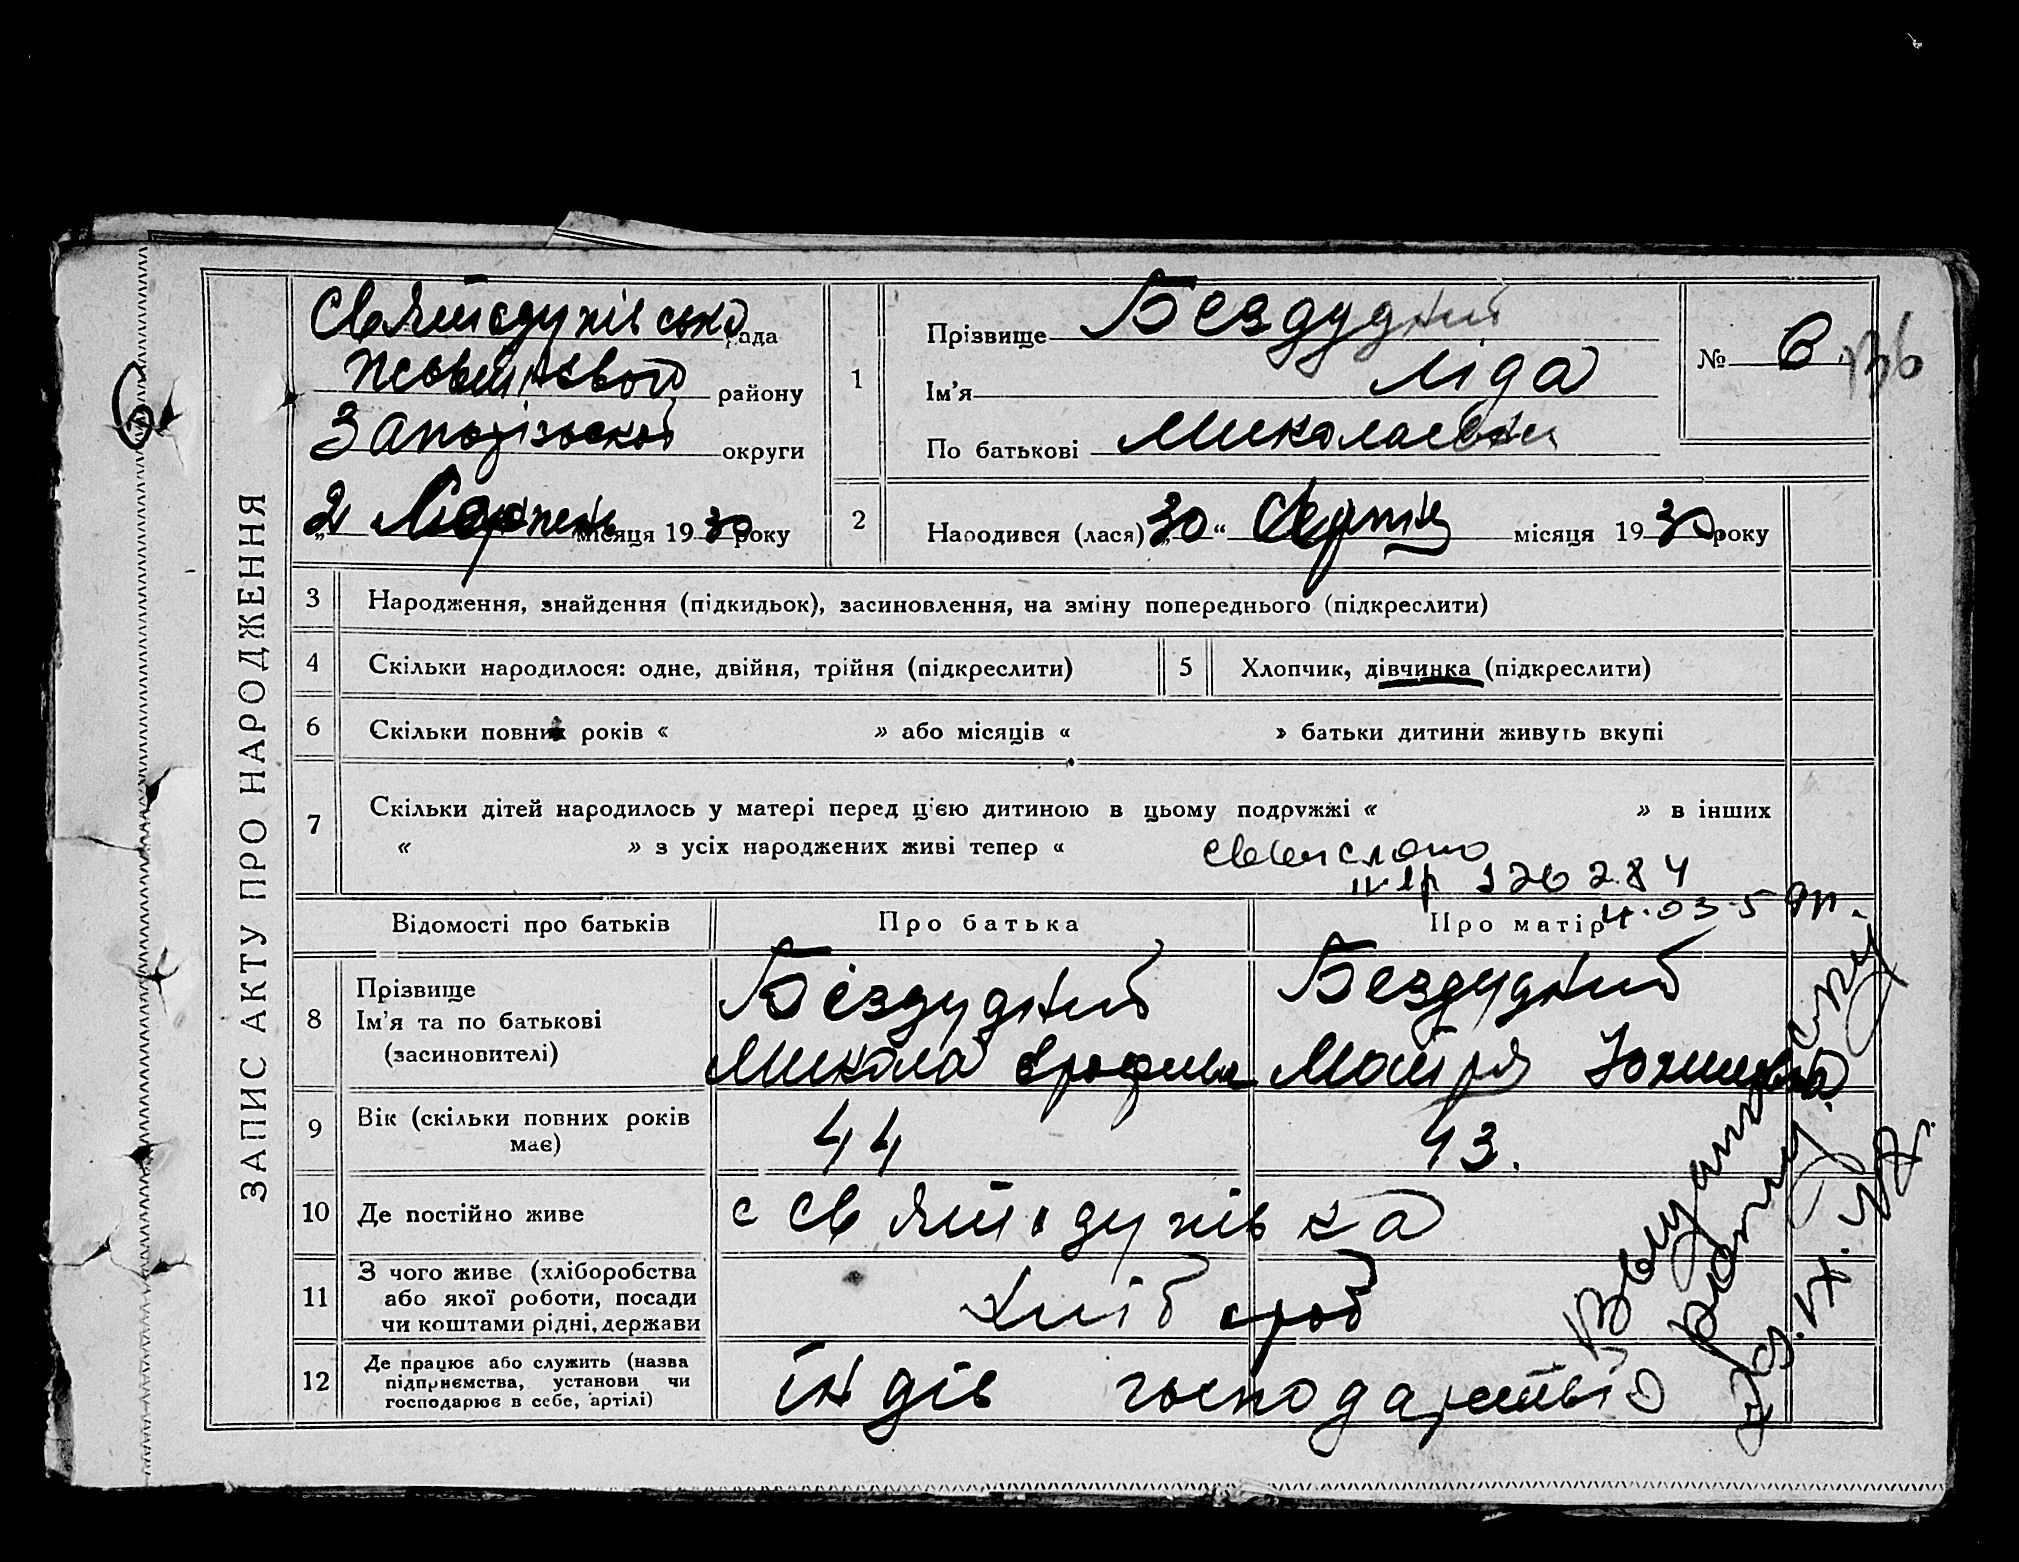 ЗАПИС АКТУ ПРО НАРОДЖЕННЯ
Святодухівсько рада
району
Запорізької округи
„2 місяця 1930 року
1
Прізвище Бездудний
Ім'я Ліда
По батькові Миколаевна
№ 6
2
Народився (лася) „30“ Серпня місяця 1930 року
3 Народження, знайдення (підкидьок), засиновлення, на зміну попереднього (підкреслити)
4 Скільки народилося: одне, двійня, трійня (підкреслити)
5 Хлопчик, дівчинка (підкреслити)
6 Скільки повних років « » або місяців « » батьки дитини живуть вкупі
7 Скільки дітей народилось у матері перед цією дитиною в цьому подружжі « » в інших
« » з усіх народжених живі тепер «
126284
Відомості про батьків
Про батька
Про матір
8 Прізвище
Ім'я та по батькові
(засиновителі)
Бездудний
Микола
Бездудний
Мотря
9 Вік (скільки повних років має)
44
43.
10 Де постійно живе
с Святодухівка
11 З чого живе (хліборобства
або якої роботи, посади
чи коштами рідні, держави
хлібороб
12 Де працює або служить (назва
підприємства, установи чи
господарює в себе, артілі)
індів господарство